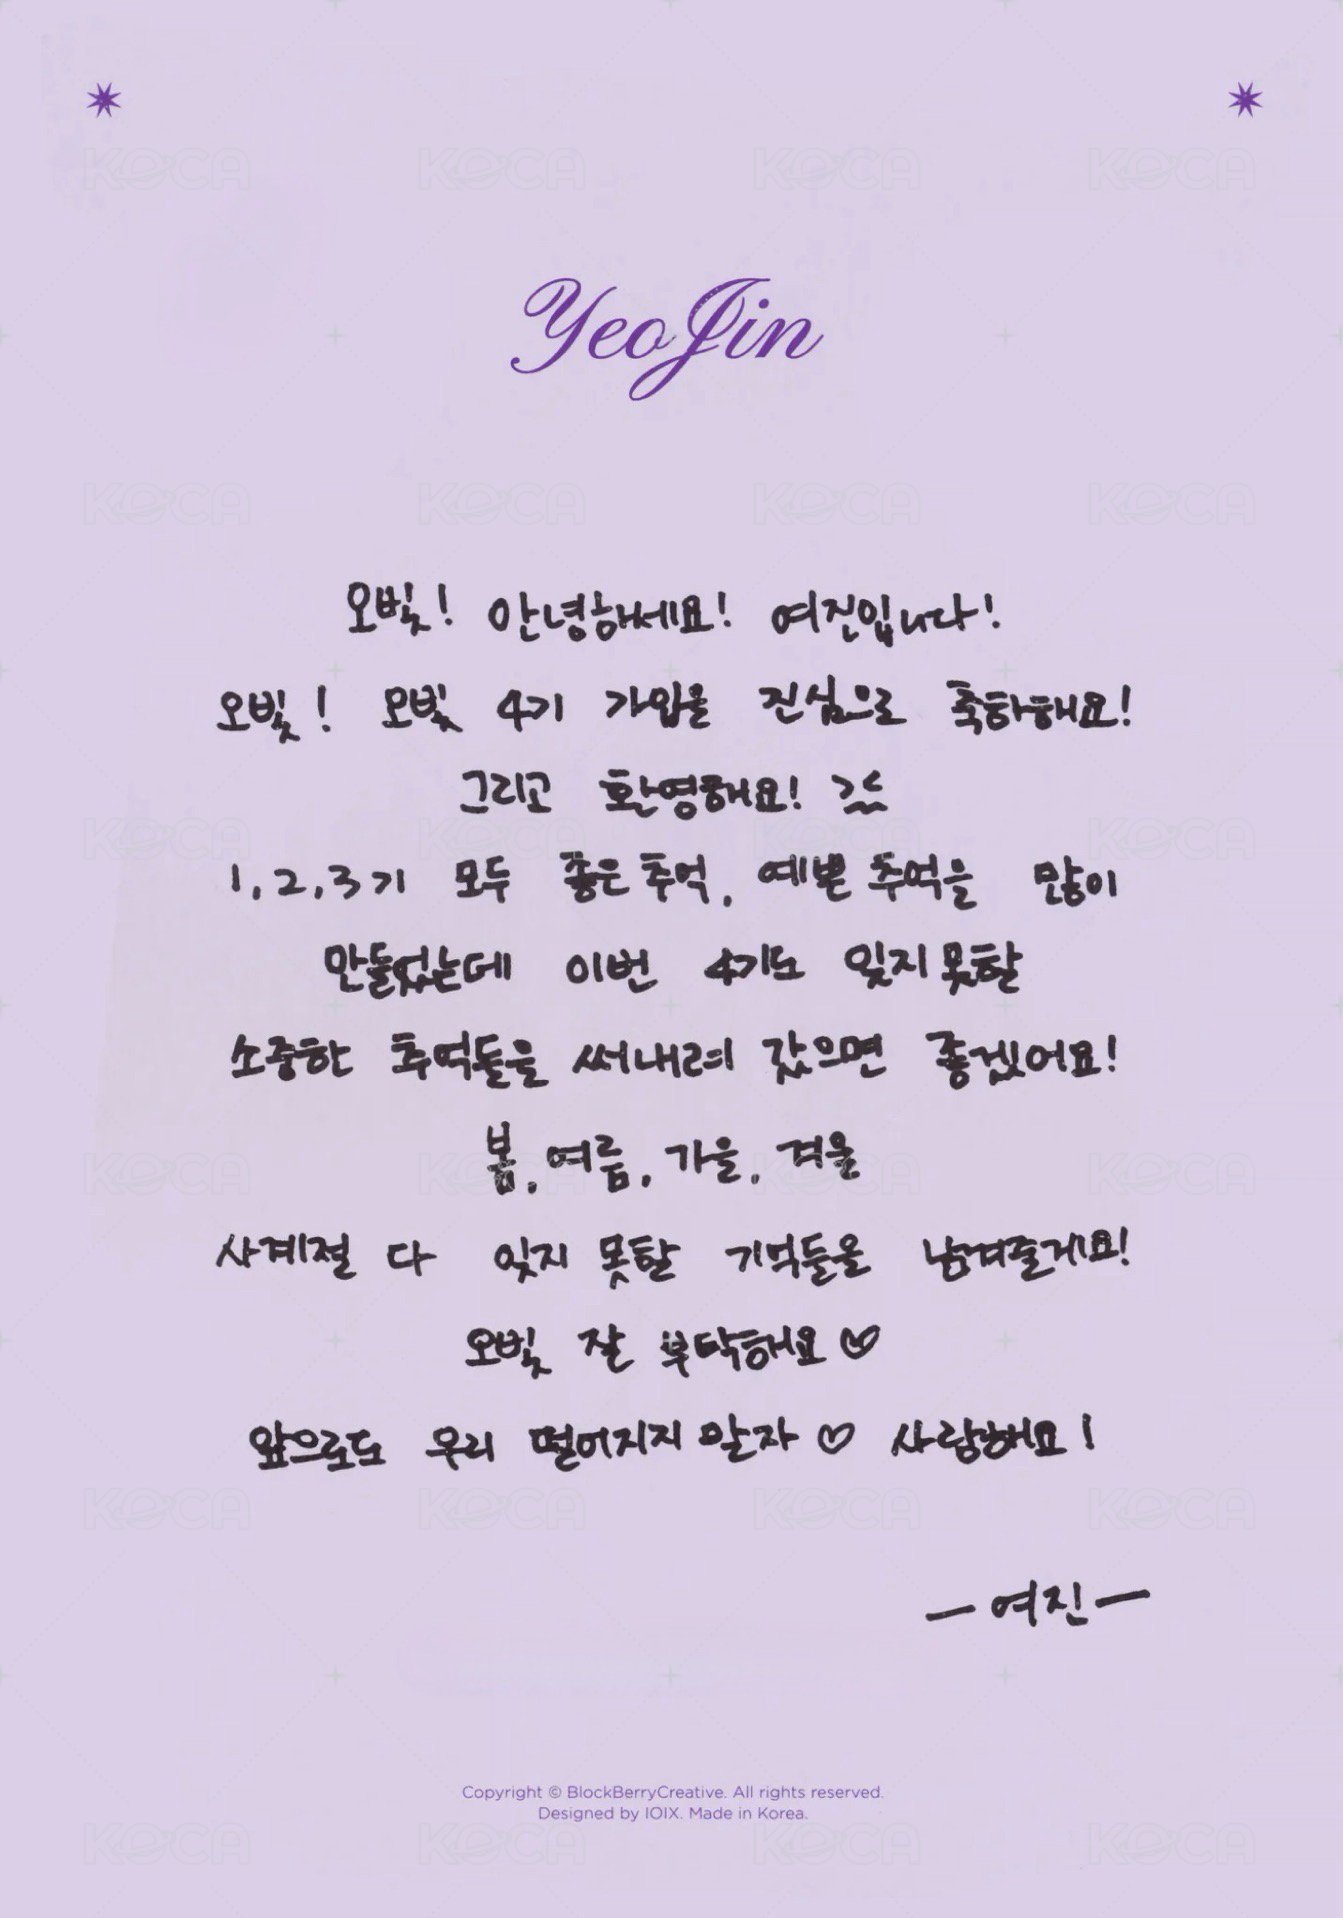 YeoJin
오빛! 안녕하세요! 여진입니다!
오빛! 오빛 4기 가입을 진심으로 축하해요!
그리고 환영해요! ㅋㅋ
1,2,3기 모두 좋은 추억, 예쁜 추억을 많이
만들었는데 이번 4기도 잊지 못할
소중한 추억들을 써내려 갔으면 좋겠어요!
봄, 여름, 가을, 겨울
사계절 다 잊지 못할 기억들을 남겨줄게요!
오빛 잘 부탁해요♡
앞으로도 우리 떨어지지 말자♡ 사랑해요!
- 여진 -
Copyright © BlockBerryCreative. All rights reserved.
Designed by IOIX. Made in Korea.
KOCA